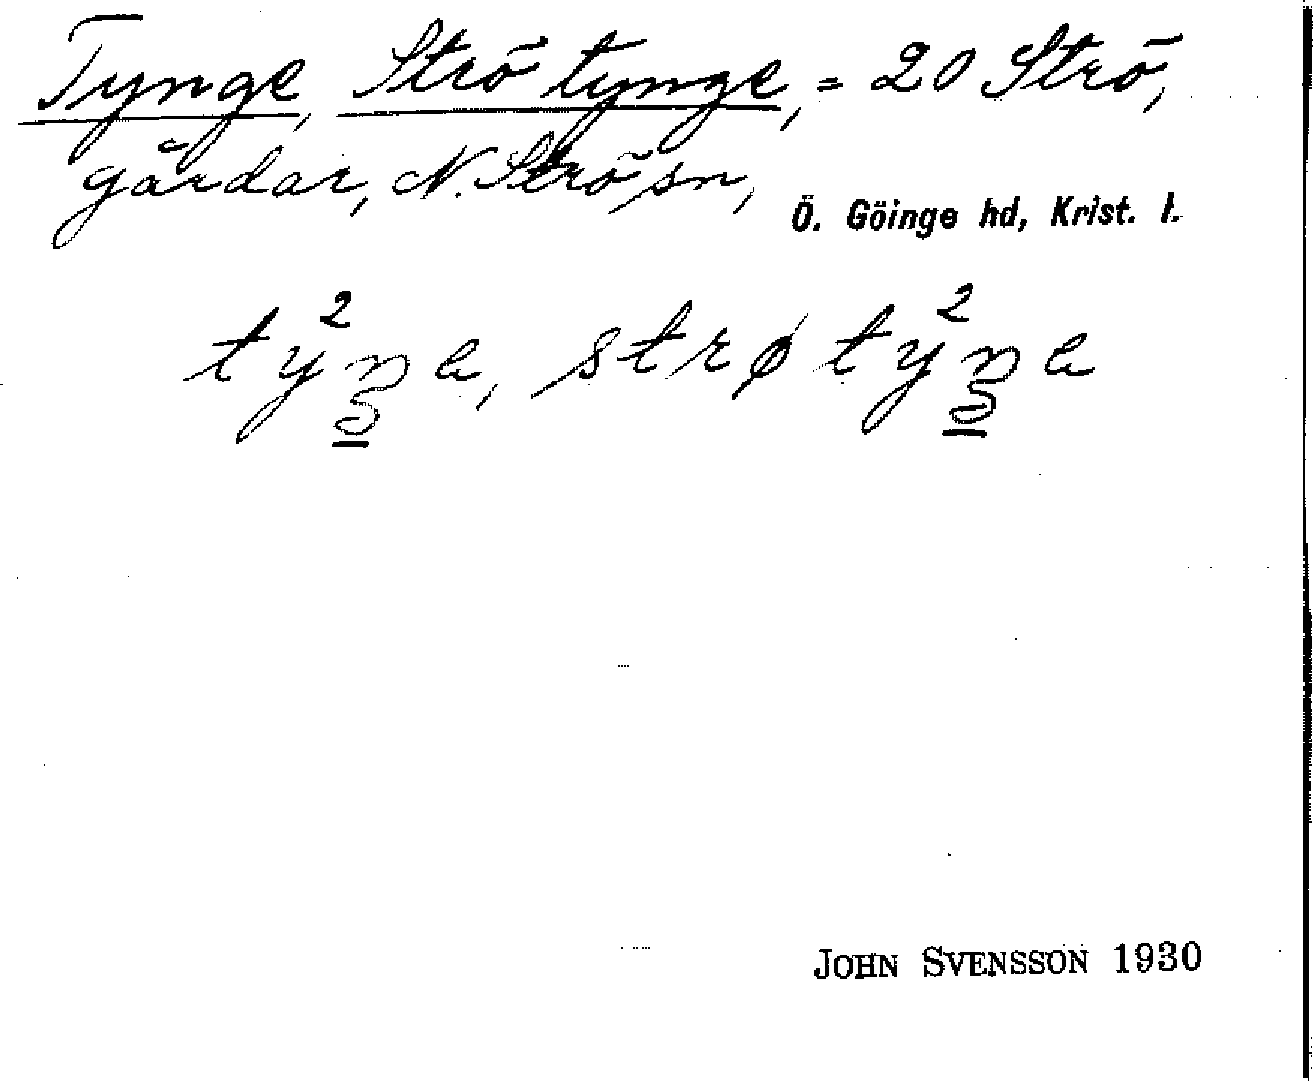 Tynge, Strö tynge, = 20 Strö,
gårdar, N. Strö sn, Ö. Göinge hd, Krist. l.
ty²ŋe, strøty²ŋe
JOHN SVENSSON 1930